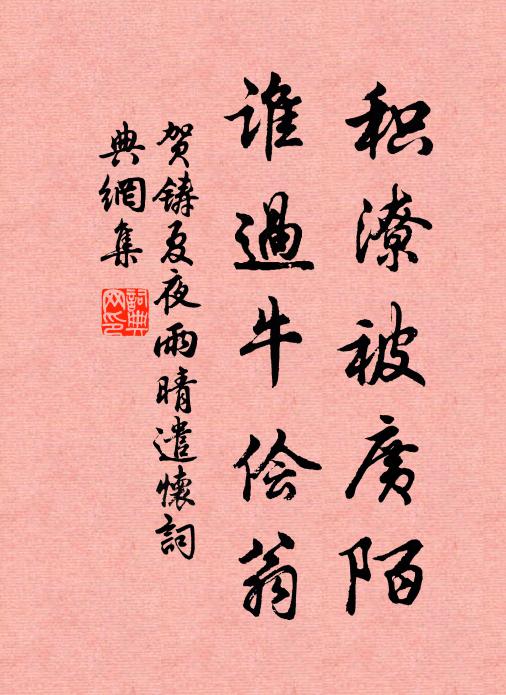 积潦被廣陌
谁過牛侩翁
賀鑄夏夜雨晴遣懷詞
典網集
詞典網印